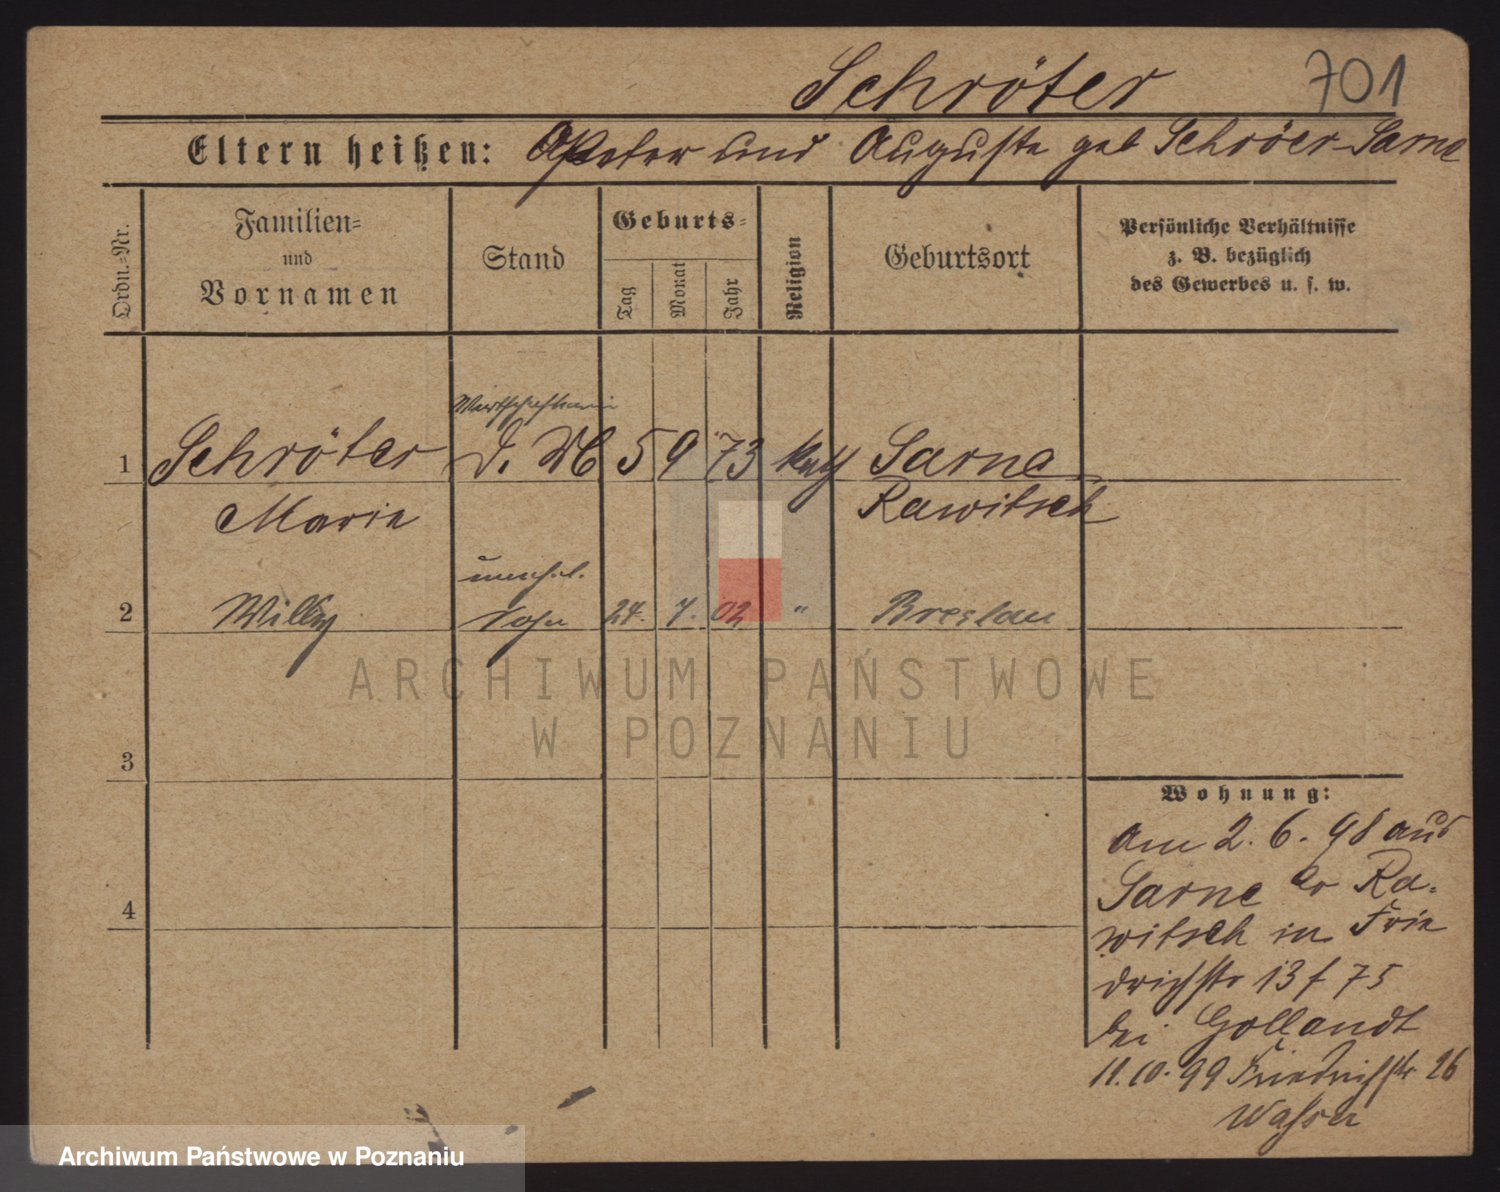 Schröter 701
Eltern heißen: Peter und Auguste geb Schröer Sarne
Ordn.-Nr.
Familien-
und
Vornamen
Stand
Geburts-
Tag
Monat
Jahr
Religion
Geburtsort
Persönliche Verhältnisse
z. B. bezüglich
des Gewerbes u. s. w.
1 Schröter D. M 5 9 73 kath Sarne
Marie Rawitsch
unehel.
2 Willy Sohn 24. 7. 02 " Breslau
3
4
Wohnung:
Am 2. 6. 98 aus
Sarne Kr Ra-
witsch in Frie
drichstr 13 f 75
bei Gollandt
11.10.99 Friedrichstr 26
ARCHIWUM PAŃSTWOWE
W POZNANIU
Archiwum Państwowe w Poznaniu